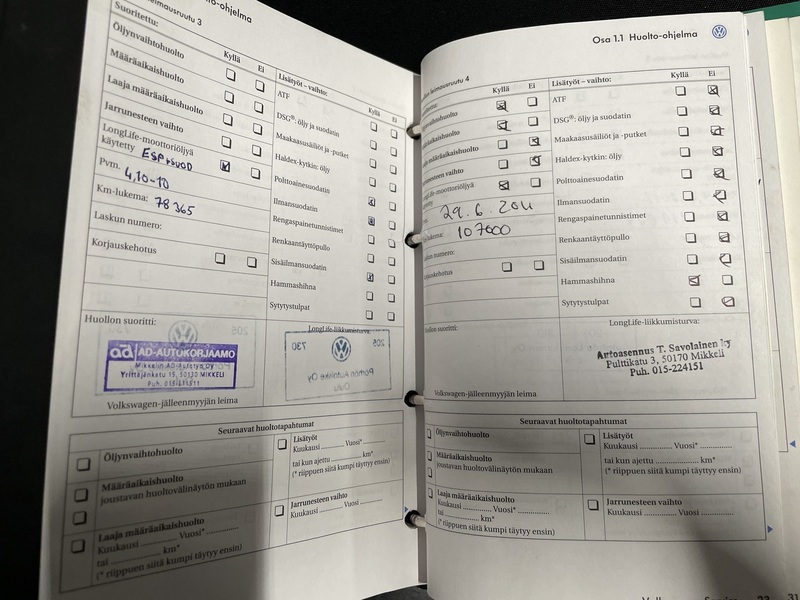 Suoritettu:
Öljynvaihtohuolto
Määräaikaishuolto
Laaja määräaikaishuolto
Jarrunesteen vaihto
LongLife-moottoriöljyä
käytetty
Pvm. 4,10-10
Km-lukema: 78365
Laskun numero:
Korjauskehotus
Kyllä Ei
Lisätyöt – vaihto:
Kyllä Ei
ATF
DSG®: öljy ja suodatin
Maakaasusäiliöt ja -putket
Haldex-kytkin: öljy
Polttoainesuodatin
Ilmansuodatin
Rengaspainetunnistimet
Renkaantäyttöpullo
Sisäilmansuodatin
Hammashihna
Sytytystulpat
Huollon suoritti:
ad AD-AUTOKORJAAMO
Yrittäjänkatu 15, 50130 MIKKELI
LongLife-liikkumisturva:
730 205
Volkswagen-jälleenmyyjän leima
Seuraavat huoltotapahtumat
Öljynvaihtohuolto
Määräaikaishuolto
joustavan huoltovälinäytön mukaan
Laaja määräaikaishuolto
Kuukausi ............ Vuosi* ............
tai ............ km*
(* riippuen siitä kumpi täytyy ensin)
Lisätyöt
Kuukausi ............ Vuosi* ............
tai kun ajettu ............ km*
(* riippuen siitä kumpi täytyy ensin)
Jarrunesteen vaihto
Kuukausi ............ Vuosi ............
Osa 1.1 Huolto-ohjelma
leimausruutu 4
Kyllä Ei
Lisätyöt – vaihto:
Kyllä Ei
ATF
DSG®: öljy ja suodatin
Maakaasusäiliöt ja -putket
Haldex-kytkin: öljy
Polttoainesuodatin
Ilmansuodatin
Rengaspainetunnistimet
Renkaantäyttöpullo
Sisäilmansuodatin
Hammashihna
Sytytystulpat
29.6.2011
107000
LongLife-liikkumisturva:
Autoasennus T. Savolainen Ky
Pulttikatu 3, 50170 Mikkeli
Puh. 015-224151
Volkswagen-jälleenmyyjän leima
Seuraavat huoltotapahtumat
Öljynvaihtohuolto
Määräaikaishuolto
joustavan huoltovälinäytön mukaan
Laaja määräaikaishuolto
Kuukausi ............ Vuosi* ............
tai ............ km*
(* riippuen siitä kumpi täytyy ensin)
Lisätyöt
Kuukausi ............ Vuosi* ............
tai kun ajettu ............ km*
(* riippuen siitä kumpi täytyy ensin)
Jarrunesteen vaihto
Kuukausi ............ Vuosi ............